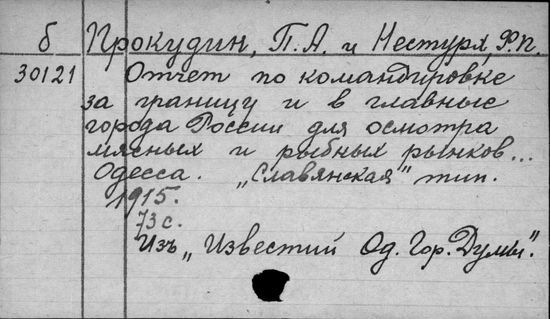 б Прокудин, П.А. и Нестурх, Ф.П.
30121 Отчет по командировке
за границу и в главные
города России для осмотра
мясных и рыбных рынков...
Одесса. „Славянская" тип.
1915.
73 с.
Изъ „Известий Од. Гор. Думы".